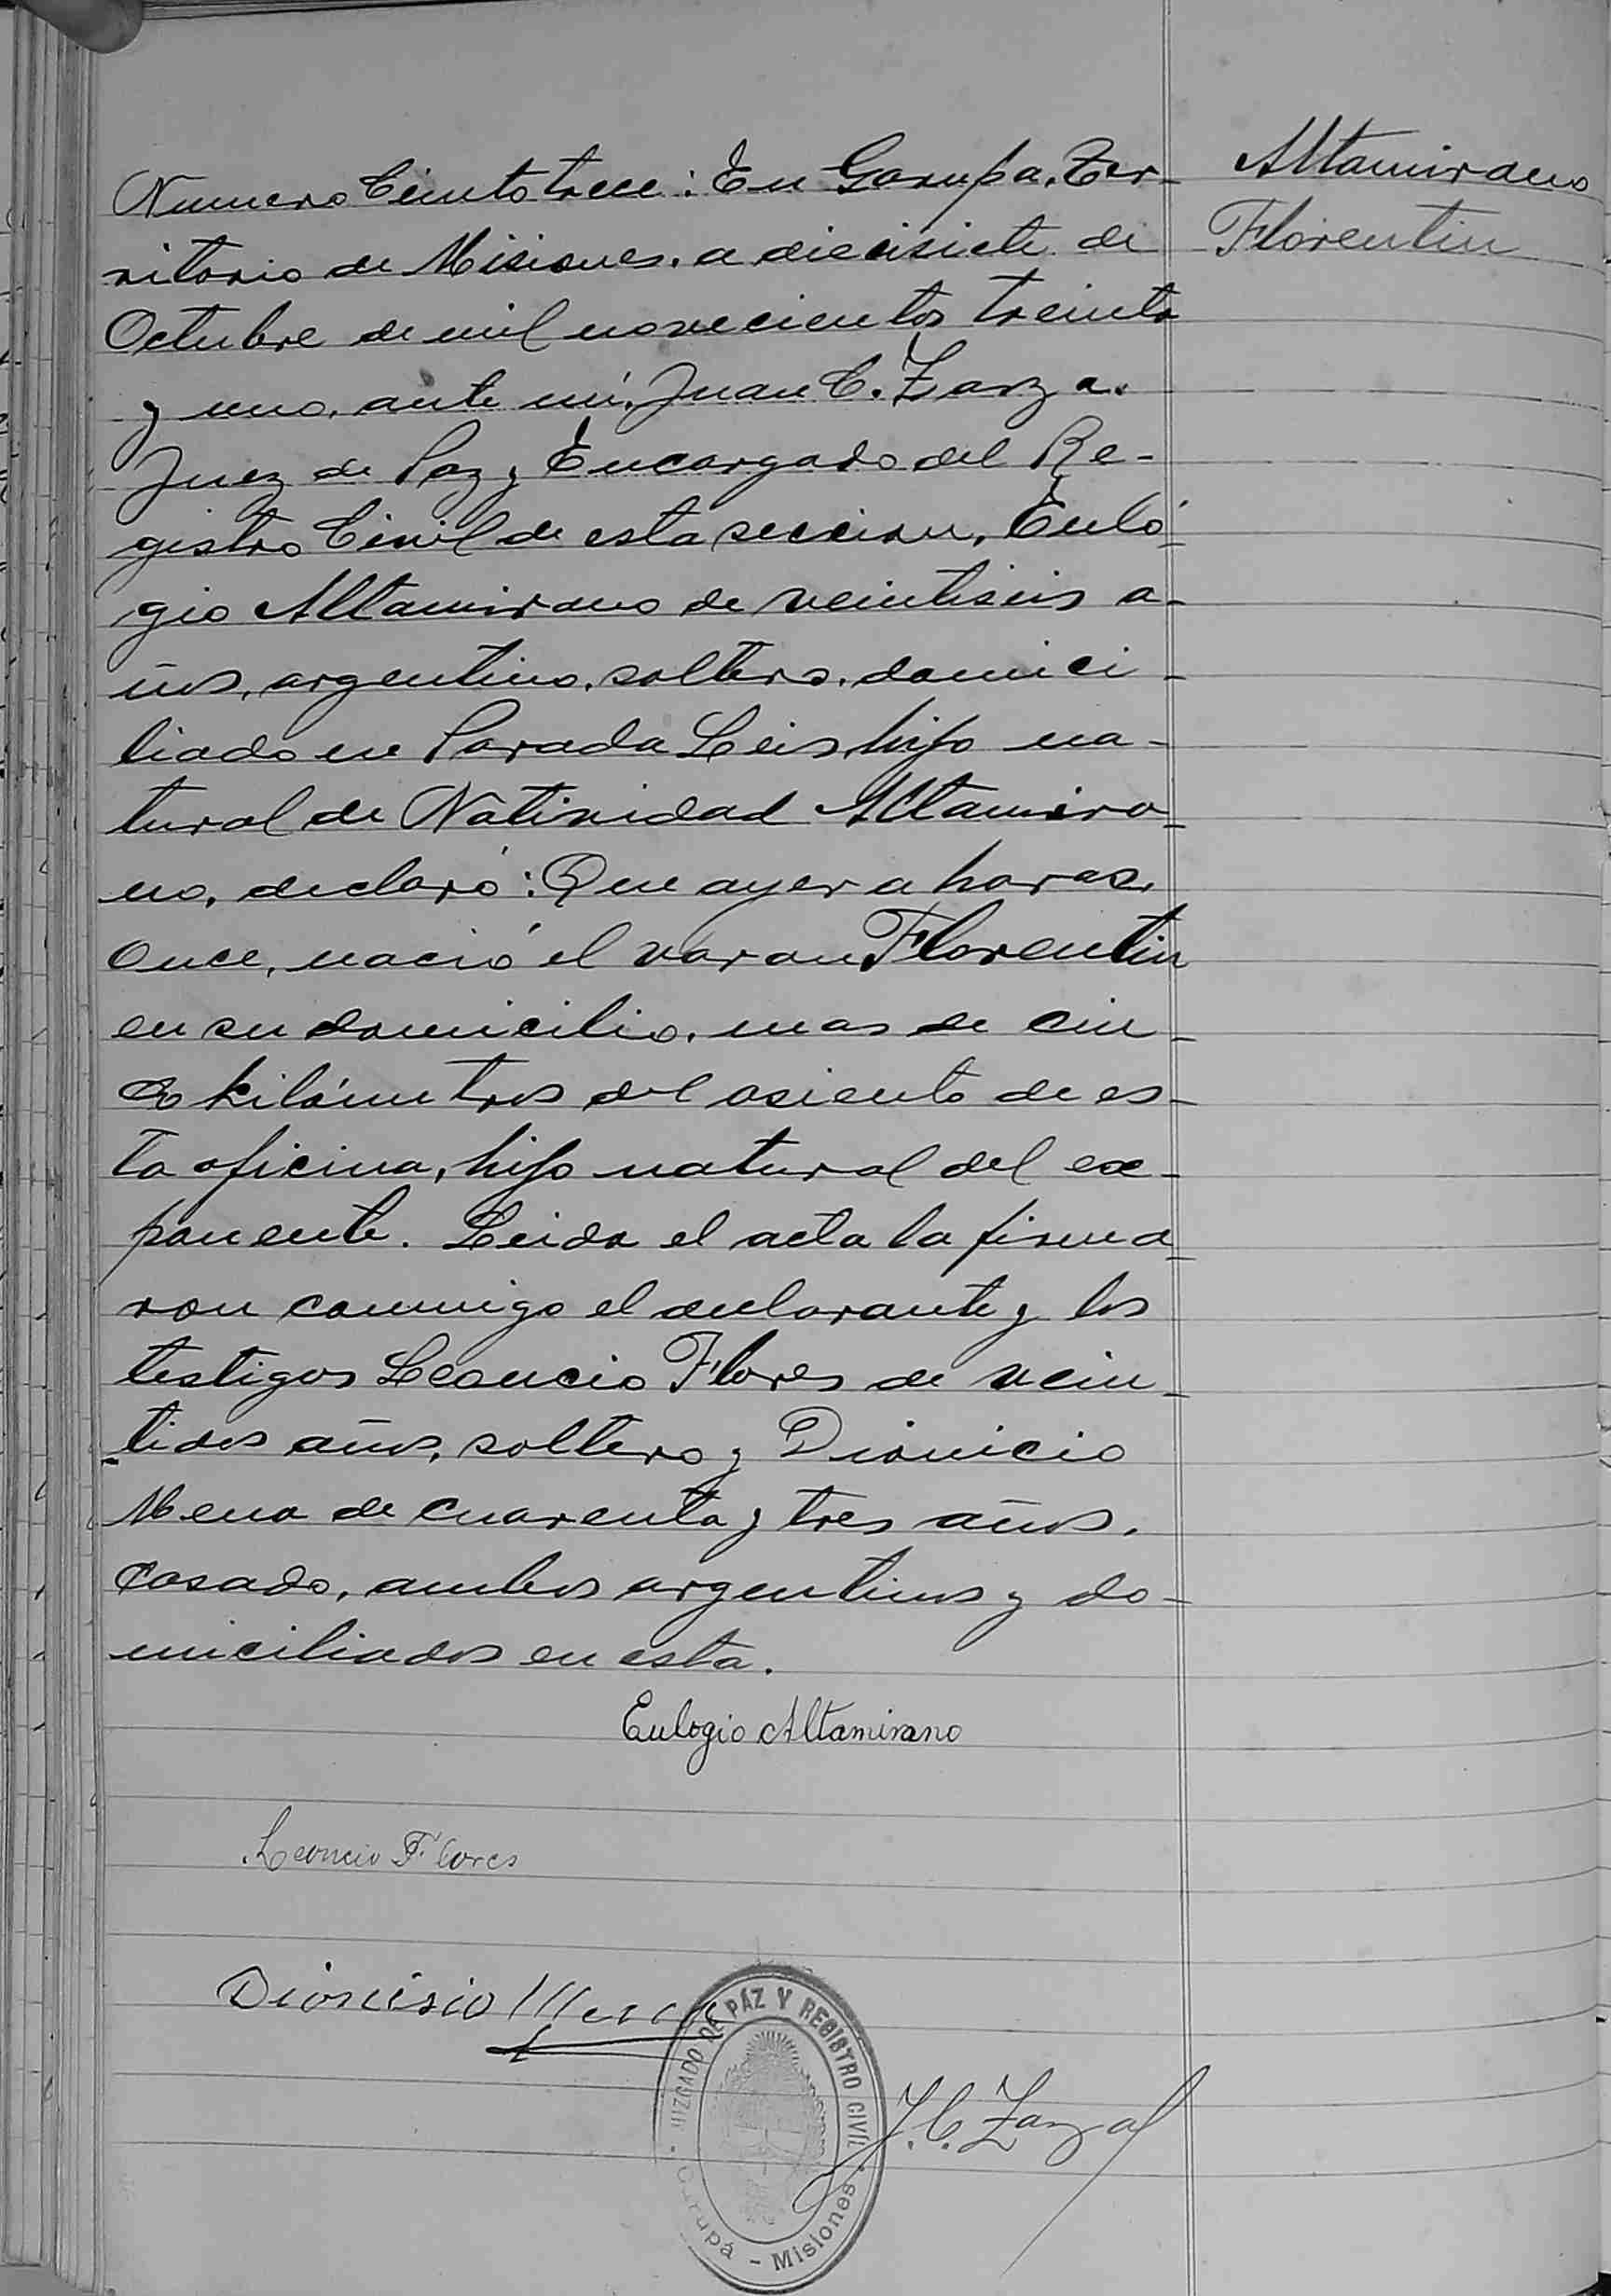 Altamirano
Florentin
Numero Ciento trece: En Garupa, Ter-
ritorio de Misiones, a diecisiete de
Octubre de mil novecientos treinta
y uno, ante mí, Juan C. Zarza,
Juez de Paz y Encargado del Re-
gistro Civil de esta seccion, Euló-
gio Altamirano de veintiseis a-
ños, argentino, soltero, domici-
liado en Parada Leis, hijo na-
tural de Natividad Altamira-
no, declaró: Que ayer a horas
once, nació el varon Florentin
en su domicilio, mas de cin-
co kilómetros del asiento de es-
ta oficina, hijo natural del ex-
ponente. Leida el acta la firma-
ron conmigo el declarante y los
testigos Leoncio Flores de vein-
tidos años, soltero y Dionicio
Mena de cuarenta y tres años,
casado, ambos argentinos y do-
miciliados en esta.
Eulogio Altamirano
Leoncio Flores
Dionisio Mena
J. C. Zarza
JUZGADO DE PAZ Y REGISTRO CIVIL
Garupá - Misiones